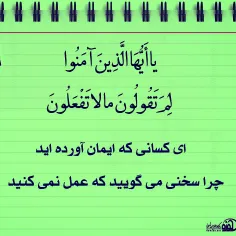 يا أَيُّهَا الَّذِينَ آمَنُوا
لِمَ تَقُولُونَ مالا تَفْعَلُونَ
ای کسانی که ایمان آورده اید
چرا سخنی می گویید که عمل نمی کنید